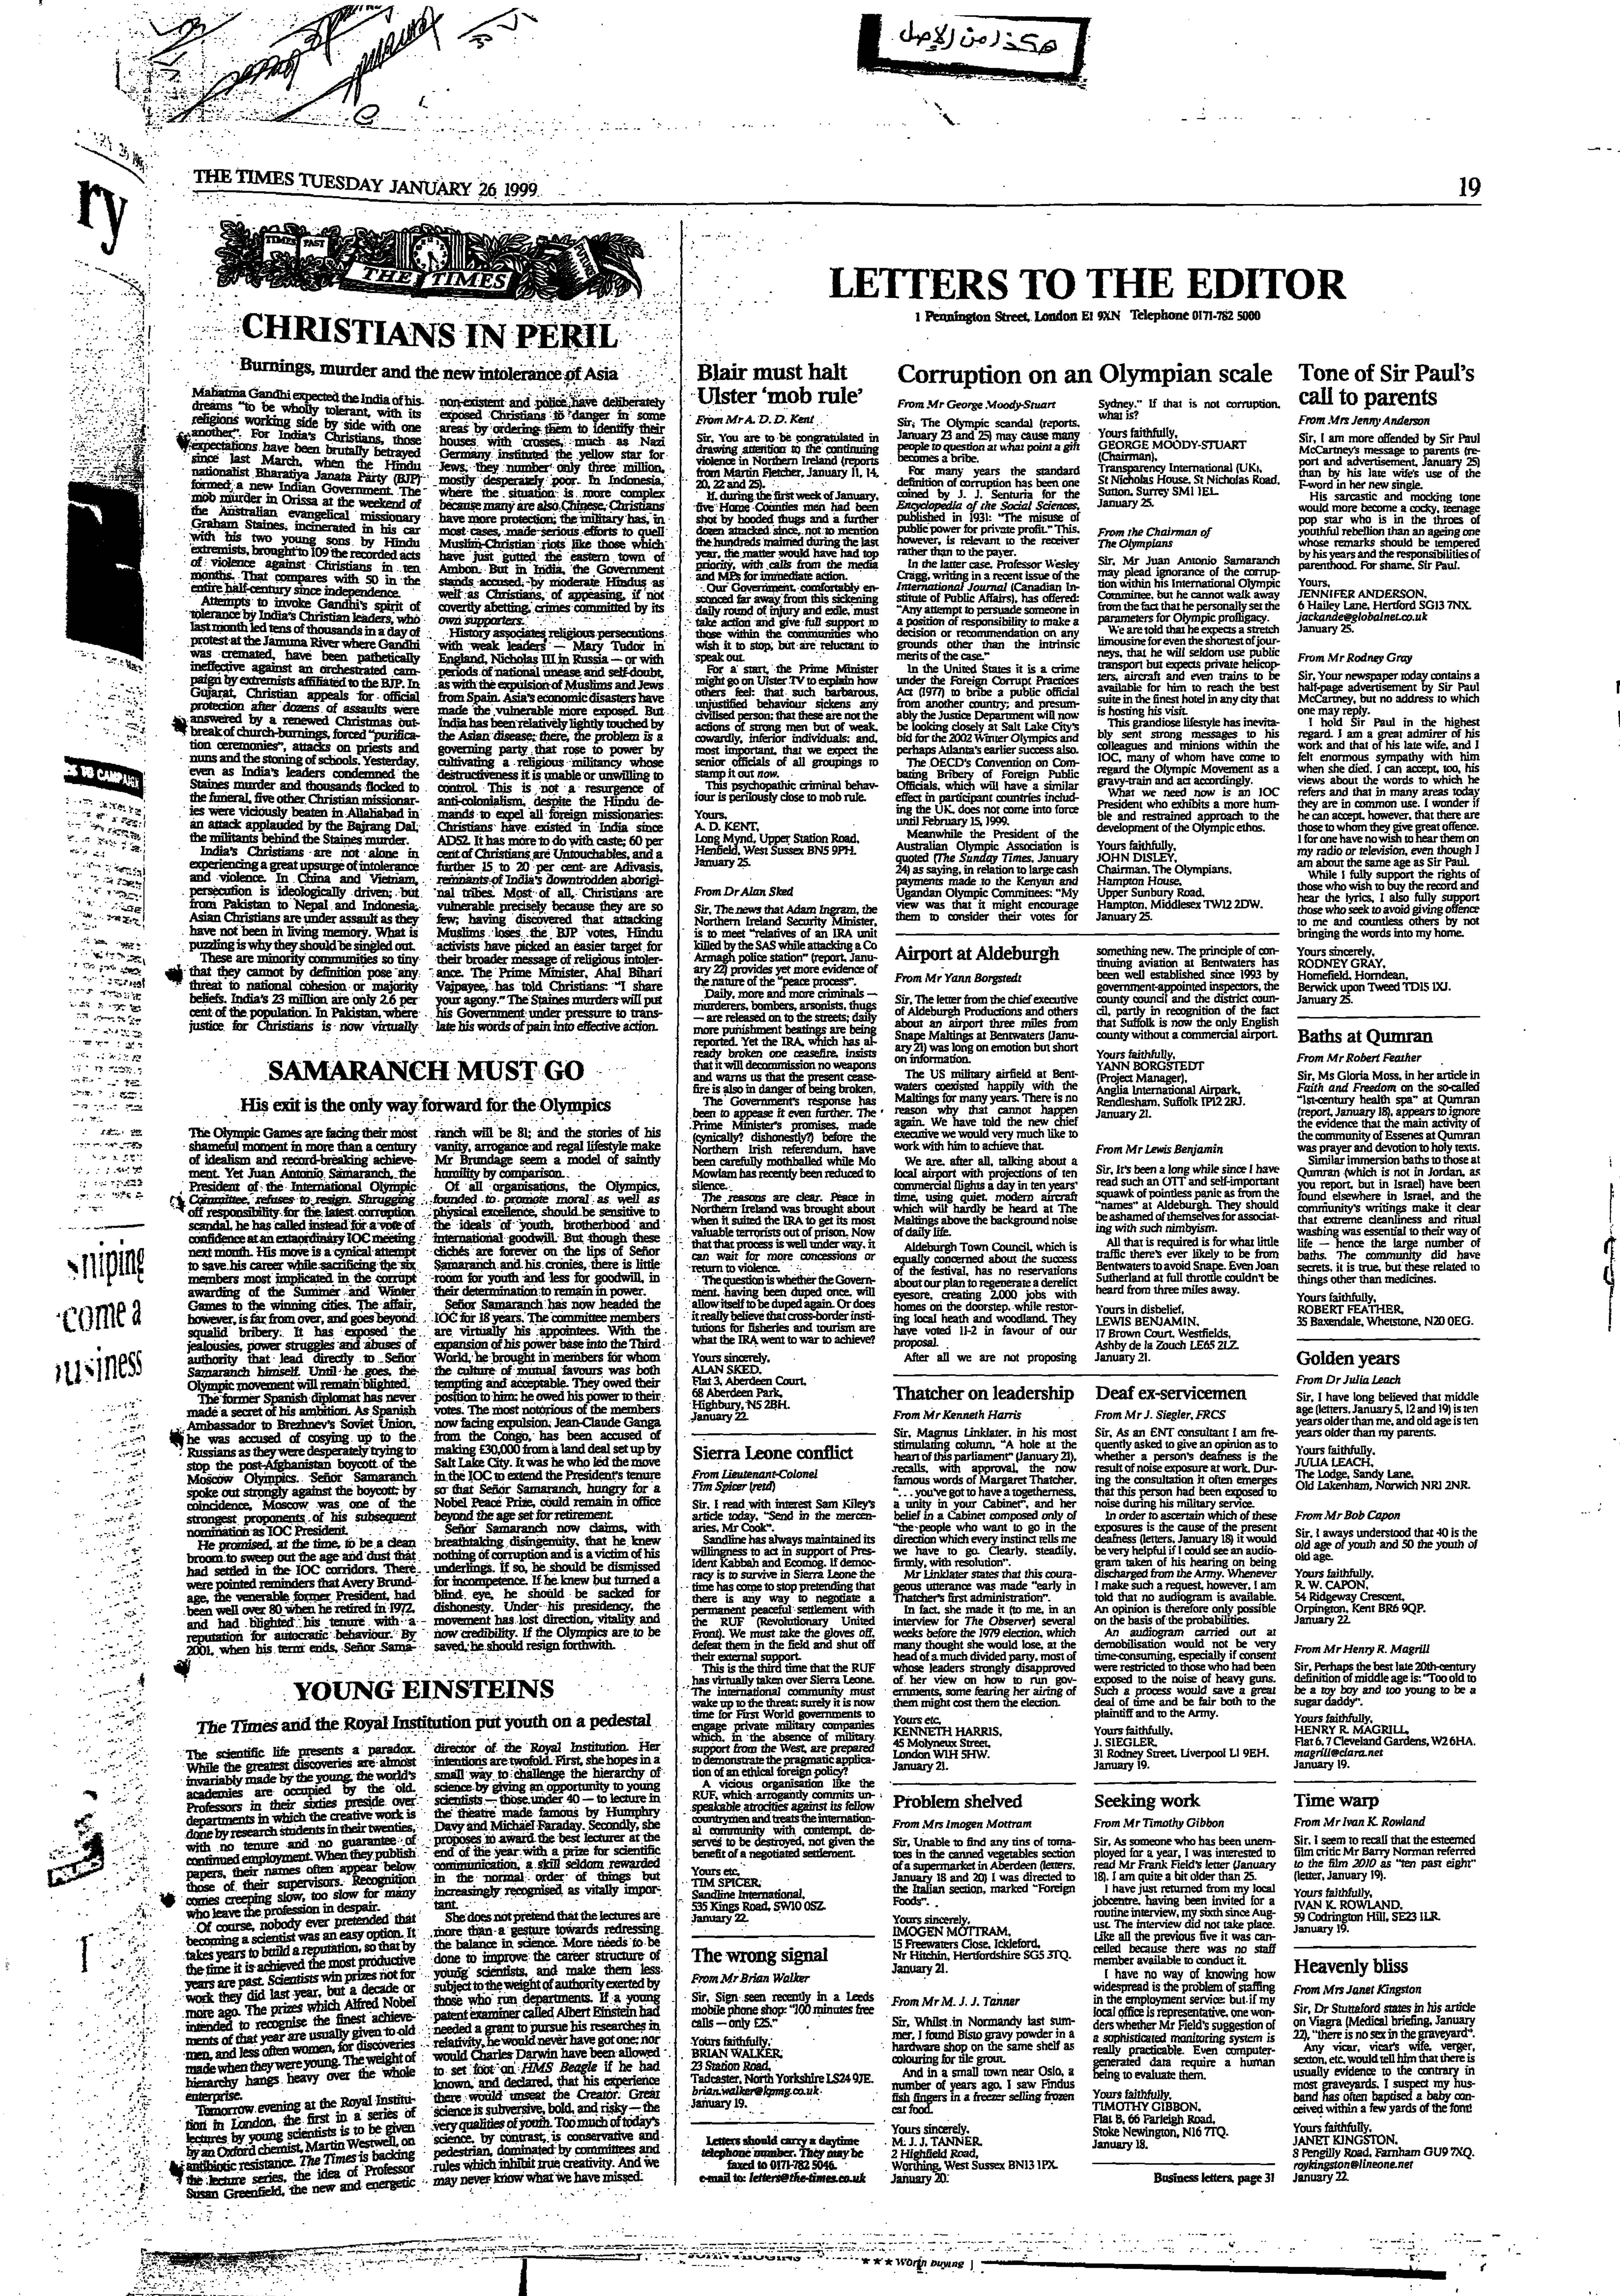 هكذا من الأصل
THE TIMES TUESDAY JANUARY 26 1999
19
ry
TIMES PAST
THE TIMES
FUTURE
CHRISTIANS IN PERIL
Burnings, murder and the new intolerance of Asia
Mahatma Gandhi expected the India of his
dreams "to be wholly tolerant, with its
religions working side by side with one
another". For India's Christians, those
expectations have been brutally betrayed
since last March, when the Hindu
nationalist Bharatiya Janata Party (BJP)
formed a new Indian Government. The
mob murder in Orissa at the weekend of
the Australian evangelical missionary
Graham Staines, incinerated in his car
with his two young sons by Hindu
extremists, brought to 109 the recorded acts
of violence against Christians in ten
months. That compares with 50 in the
entire half-century since independence.
Attempts to invoke Gandhi's spirit of
tolerance by India's Christian leaders, who
last month led tens of thousands in a day of
protest at the Jamuna River where Gandhi
was cremated, have been pathetically
ineffective against an orchestrated cam-
paign by extremists affiliated to the BJP. In
Gujarat, Christian appeals for official
protection after dozens of assaults were
answered by a renewed Christmas out-
break of church-burnings, forced "purifica-
tion ceremonies", attacks on priests and
nuns and the stoning of schools. Yesterday,
even as India's leaders condemned the
Staines murder and thousands flocked to
the funeral, five other Christian missionar-
ies were viciously beaten in Allahabad in
an attack applauded by the Bajrang Dal,
the militants behind the Staines murder.
India's Christians are not alone in
experiencing a great upsurge of intolerance
and violence. In China and Vietnam,
persecution is ideologically driven; but
from Pakistan to Nepal and Indonesia,
Asian Christians are under assault as they
have not been in living memory. What is
puzzling is why they should be singled out.
These are minority communities so tiny
that they cannot by definition pose any
threat to national cohesion or majority
beliefs. India's 23 million are only 2.6 per
cent of the population. In Pakistan, where
justice for Christians is now virtually
non-existent and police have deliberately
exposed Christians to danger in some
areas by ordering them to identify their
houses with crosses, much as Nazi
Germany instituted the yellow star for
Jews, they number only three million,
mostly desperately poor. In Indonesia,
where the situation is more complex
because many are also Chinese, Christians
have more protection; the military has, in
most cases, made serious efforts to quell
Muslim-Christian riots like those which
have just gutted the eastern town of
Ambon. But in India, the Government
stands accused, by moderate Hindus as
well as Christians, of appeasing, if not
covertly abetting, crimes committed by its
own supporters.
History associates religious persecutions
with weak leaders — Mary Tudor in
England, Nicholas III in Russia — or with
periods of national unease and self-doubt,
as with the expulsion of Muslims and Jews
from Spain. Asia's economic disasters have
made the vulnerable more exposed. But
India has been relatively lightly touched by
the Asian disease; there, the problem is a
governing party that rose to power by
cultivating a religious militancy whose
destructiveness it is unable or unwilling to
control. This is not a resurgence of
anti-colonialism, despite the Hindu de-
mands to expel all foreign missionaries:
Christians have existed in India since
AD52. It has more to do with caste; 60 per
cent of Christians are Untouchables, and a
further 15 to 20 per cent are Adivasis,
remnants of India's downtrodden aborigi-
nal tribes. Most of all, Christians are
vulnerable precisely because they are so
few; having discovered that attacking
Muslims loses the BJP votes, Hindu
activists have picked an easier target for
their broader message of religious intoler-
ance. The Prime Minister, Ahal Bihari
Vajpayee, has told Christians: "I share
your agony." The Staines murders will put
his Government under pressure to trans-
late his words of pain into effective action.
SAMARANCH MUST GO
His exit is the only way forward for the Olympics
The Olympic Games are facing their most
shameful moment in more than a century
of idealism and record-breaking achieve-
ment. Yet Juan Antonio Samaranch, the
President of the International Olympic
Committee, refuses to resign. Shrugging
off responsibility for the latest corruption
scandal, he has called instead for a vote of
confidence at an extraordinary IOC meeting
next month. His move is a cynical attempt
to save his career while sacrificing the six
members most implicated in the corrupt
awarding of the Summer and Winter
Games to the winning cities. The affair,
however, is far from over, and goes beyond
squalid bribery. It has exposed the
jealousies, power struggles and abuses of
authority that lead directly to Señor
Samaranch himself. Until he goes, the
Olympic movement will remain blighted.
The former Spanish diplomat has never
made a secret of his ambition. As Spanish
Ambassador to Brezhnev's Soviet Union,
he was accused of cosying up to the
Russians as they were desperately trying to
stop the post-Afghanistan boycott of the
Moscow Olympics. Señor Samaranch
spoke out strongly against the boycott; by
coincidence, Moscow was one of the
strongest proponents of his subsequent
nomination as IOC President.
He promised, at the time, to be a clean
broom to sweep out the age and dust that
had settled in the IOC corridors. There
were pointed reminders that Avery Brund-
age, the venerable former President, had
been well over 80 when he retired in 1972,
and had blighted his tenure with a
reputation for autocratic behaviour. By
2001, when his term ends, Señor Sama-
ranch will be 81; and the stories of his
vanity, arrogance and regal lifestyle make
Mr Brundage seem a model of saintly
humility by comparison.
Of all organisations, the Olympics,
founded to promote moral as well as
physical excellence, should be sensitive to
the ideals of youth, brotherhood and
international goodwill. But though these
clichés are forever on the lips of Señor
Samaranch and his cronies, there is little
room for youth and less for goodwill, in
their determination to remain in power.
Señor Samaranch has now headed the
IOC for 18 years. The committee members
are virtually his appointees. With the
expansion of his power base into the Third
World, he brought in members for whom
the culture of mutual favours was both
tempting and acceptable. They owed their
position to him; he owed his power to their
votes. The most notorious of the members
now facing expulsion, Jean-Claude Ganga
from the Congo, has been accused of
making £30,000 from a land deal set up by
Salt Lake City. It was he who led the move
in the IOC to extend the President's tenure
so that Señor Samaranch, hungry for a
Nobel Peace Prize, could remain in office
beyond the age set for retirement.
Señor Samaranch now claims, with
breathtaking disingenuity, that he knew
nothing of corruption and is a victim of his
underlings. If so, he should be dismissed
for incompetence. If he knew but turned a
blind eye, he should be sacked for
dishonesty. Under his presidency, the
movement has lost direction, vitality and
now credibility. If the Olympics are to be
saved, he should resign forthwith.
YOUNG EINSTEINS
The Times and the Royal Institution put youth on a pedestal
The scientific life presents a paradox.
While the greatest discoveries are almost
invariably made by the young, the world's
academies are occupied by the old.
Professors in their sixties preside over
departments in which the creative work is
done by research students in their twenties,
with no tenure and no guarantee of
continued employment. When they publish
papers, their names often appear below
those of their supervisors. Recognition
comes creeping slow, too slow for many
who leave the profession in despair.
Of course, nobody ever pretended that
becoming a scientist was an easy option. It
takes years to build a reputation, so that by
the time it is achieved the most productive
years are past. Scientists win prizes not for
work they did last year, but a decade or
more ago. The prizes which Alfred Nobel
intended to recognise the finest achieve-
ments of that year are usually given to old
men, and less often women, for discoveries
made when they were young. The weight of
hierarchy hangs heavy over the whole
enterprise.
Tomorrow evening at the Royal Institu-
tion in London, the first in a series of
lectures by young scientists is to be given
by an Oxford chemist, Martin Westwell, on
antibiotic resistance. The Times is backing
the lecture series, the idea of Professor
Susan Greenfield, the new and energetic
director of the Royal Institution. Her
intentions are twofold. First, she hopes in a
small way to challenge the hierarchy of
science by giving an opportunity to young
scientists — those under 40 — to lecture in
the theatre made famous by Humphry
Davy and Michael Faraday. Secondly, she
proposes to award the best lecturer at the
end of the year with a prize for scientific
communication, a skill seldom rewarded
in the normal order of things but
increasingly recognised as vitally impor-
tant.
She does not pretend that the lectures are
more than a gesture towards redressing
the balance in science. More needs to be
done to improve the career structure of
young scientists, and make them less
subject to the weight of authority exerted by
those who run departments. If a young
patent examiner called Albert Einstein had
needed a grant to pursue his researches in
relativity, he would never have got one; nor
would Charles Darwin have been allowed
to set foot on HMS Beagle if he had
known, and declared, that his experience
there would unseat the Creator. Great
science is subversive, bold, and risky — the
very qualities of youth. Too much of today's
science, by contrast, is conservative and
pedestrian, dominated by committees and
rules which inhibit true creativity. And we
may never know what we have missed.
LETTERS TO THE EDITOR
1 Pennington Street, London E1 9XN Telephone 0171-782 5000
Blair must halt
Ulster 'mob rule'
From Mr A. D. D. Kent
Sir, You are to be congratulated in
drawing attention to the continuing
violence in Northern Ireland (reports
from Martin Fletcher, January 11, 14,
20, 22 and 25).
If, during the first week of January,
five Home Counties men had been
shot by hooded thugs and a further
dozen attacked since, not to mention
the hundreds maimed during the last
year, the matter would have had top
priority, with calls from the media
and MPs for immediate action.
Our Government, comfortably en-
sconced far away from this sickening
daily round of injury and exile, must
take action and give full support to
those within the communities who
wish it to stop, but are reluctant to
speak out.
For a start, the Prime Minister
might go on Ulster TV to explain how
others feel: that such barbarous,
unjustified behaviour sickens any
civilised person; that these are not the
actions of strong men but of weak,
cowardly, inferior individuals; and,
most important, that we expect the
senior officials of all groupings to
stamp it out now.
This psychopathic criminal behav-
iour is perilously close to mob rule.
Yours,
A. D. KENT,
Long Mynd, Upper Station Road,
Henfield, West Sussex BN5 9PH.
January 25.
From Dr Alan Sked
Sir, The news that Adam Ingram, the
Northern Ireland Security Minister,
is to meet "relatives of an IRA unit
killed by the SAS while attacking a Co
Armagh police station" (report, Janu-
ary 22) provides yet more evidence of
the nature of the "peace process".
Daily, more and more criminals —
murderers, bombers, arsonists, thugs
— are released on to the streets; daily
more punishment beatings are being
reported. Yet the IRA, which has al-
ready broken one ceasefire, insists
that it will decommission no weapons
and warns us that the present cease-
fire is also in danger of being broken.
The Government's response has
been to appease it even further. The
Prime Minister's promises, made
(cynically? dishonestly?) before the
Northern Irish referendum, have
been carefully mothballed while Mo
Mowlam has recently been reduced to
silence.
The reasons are clear. Peace in
Northern Ireland was brought about
when it suited the IRA to get its most
valuable terrorists out of prison. Now
that that process is well under way, it
can wait for more concessions or
return to violence.
The question is whether the Govern-
ment, having been duped once, will
allow itself to be duped again. Or does
it really believe that cross-border insti-
tutions for fisheries and tourism are
what the IRA went to war to achieve?
Yours sincerely,
ALAN SKED,
Flat 3, Aberdeen Court,
68 Aberdeen Park,
Highbury, N5 2BH.
January 22.
Sierra Leone conflict
From Lieutenant-Colonel
Tim Spicer (retd)
Sir, I read with interest Sam Kiley's
article today, "Send in the mercen-
aries, Mr Cook".
Sandline has always maintained its
willingness to act in support of Pres-
ident Kabbah and Ecomog. If democ-
racy is to survive in Sierra Leone the
time has come to stop pretending that
there is any way to negotiate a
permanent peaceful settlement with
the RUF (Revolutionary United
Front). We must take the gloves off,
defeat them in the field and shut off
their external support.
This is the third time that the RUF
has virtually taken over Sierra Leone.
The international community must
wake up to the threat; surely it is now
time for First World governments to
engage private military companies
which, in the absence of military
support from the West, are prepared
to demonstrate the pragmatic applica-
tion of an ethical foreign policy?
A vicious organisation like the
RUF, which arrogantly commits un-
speakable atrocities against its fellow
countrymen and treats the internation-
al community with contempt, de-
serves to be destroyed, not given the
benefit of a negotiated settlement.
Yours etc,
TIM SPICER,
Sandline International,
535 Kings Road, SW10 0SZ.
January 22.
The wrong signal
From Mr Brian Walker
Sir, Sign seen recently in a Leeds
mobile phone shop: "100 minutes free
calls — only £25."
Yours faithfully,
BRIAN WALKER,
23 Station Road,
Tadcaster, North Yorkshire LS24 9JE.
brian.walker@kpmg.co.uk
January 19.
Letters should carry a daytime
telephone number. They may be
faxed to 0171-782 5046.
e-mail to: letters@the-times.co.uk
Corruption on an Olympian scale
From Mr George Moody-Stuart
Sir, The Olympic scandal (reports,
January 23 and 25) may cause many
people to question at what point a gift
becomes a bribe.
For many years the standard
definition of corruption has been one
coined by J. J. Senturia for the
Encyclopedia of the Social Sciences,
published in 1931: "The misuse of
public power for private profit." This,
however, is relevant to the receiver
rather than to the payer.
In the latter case, Professor Wesley
Cragg, writing in a recent issue of the
International Journal (Canadian In-
stitute of Public Affairs), has offered:
"Any attempt to persuade someone in
a position of responsibility to make a
decision or recommendation on any
grounds other than the intrinsic
merits of the case."
In the United States it is a crime
under the Foreign Corrupt Practices
Act (1977) to bribe a public official
from another country; and presum-
ably the Justice Department will now
be looking closely at Salt Lake City's
bid for the 2002 Winter Olympics and
perhaps Atlanta's earlier success also.
The OECD's Convention on Com-
bating Bribery of Foreign Public
Officials, which will have a similar
effect in participant countries includ-
ing the UK, does not come into force
until February 15, 1999.
Meanwhile the President of the
Australian Olympic Association is
quoted (The Sunday Times, January
24) as saying, in relation to large cash
payments made to the Kenyan and
Ugandan Olympic Committees: "My
view was that it might encourage
them to consider their votes for
Sydney." If that is not corruption,
what is?
Yours faithfully,
GEORGE MOODY-STUART
(Chairman),
Transparency International (UK),
St Nicholas House, St Nicholas Road,
Sutton, Surrey SM1 1EL.
January 25.
From the Chairman of
The Olympians
Sir, Mr Juan Antonio Samaranch
may plead ignorance of the corrup-
tion within his International Olympic
Committee, but he cannot walk away
from the fact that he personally set the
parameters for Olympic profligacy.
We are told that he expects a stretch
limousine for even the shortest of jour-
neys, that he will seldom use public
transport but expects private helicop-
ters, aircraft and even trains to be
available for him to reach the best
suite in the finest hotel in any city that
is hosting his visit.
This grandiose lifestyle has inevita-
bly sent strong messages to his
colleagues and minions within the
IOC, many of whom have come to
regard the Olympic Movement as a
gravy-train and act accordingly.
What we need now is an IOC
President who exhibits a more hum-
ble and restrained approach to the
development of the Olympic ethos.
Yours faithfully,
JOHN DISLEY,
Chairman, The Olympians,
Hampton House,
Upper Sunbury Road,
Hampton, Middlesex TW12 2DW.
January 25.
Airport at Aldeburgh
From Mr Yann Borgstedt
Sir, The letter from the chief executive
of Aldeburgh Productions and others
about an airport three miles from
Snape Maltings at Bentwaters (Janu-
ary 21) was long on emotion but short
on information.
The US military airfield at Bent-
waters coexisted happily with the
Maltings for many years. There is no
reason why that cannot happen
again. We have told the new chief
executive we would very much like to
work with him to achieve that.
We are, after all, talking about a
local airport with projections of ten
commercial flights a day in ten years'
time, using quiet, modern aircraft
which will hardly be heard at The
Maltings above the background noise
of daily life.
Aldeburgh Town Council, which is
equally concerned about the success
of the festival, has no reservations
about our plan to regenerate a derelict
eyesore, creating 2,000 jobs with
homes on the doorstep, while restor-
ing local heath and woodland. They
have voted 11-2 in favour of our
proposal.
After all we are not proposing
something new. The principle of con-
tinuing aviation at Bentwaters has
been well established since 1993 by
government-appointed inspectors, the
county council and the district coun-
cil, partly in recognition of the fact
that Suffolk is now the only English
county without a commercial airport.
Yours faithfully,
YANN BORGSTEDT
(Project Manager),
Anglia International Airpark,
Rendlesham, Suffolk IP12 2RJ.
January 21.
From Mr Lewis Benjamin
Sir, It's been a long while since I have
read such an OTT and self-important
squawk of pointless panic as from the
"names" at Aldeburgh. They should
be ashamed of themselves for associat-
ing with such nimbyism.
All that is required is for what little
traffic there's ever likely to be from
Bentwaters to avoid Snape. Even Joan
Sutherland at full throttle couldn't be
heard from three miles away.
Yours in disbelief,
LEWIS BENJAMIN,
17 Brown Court, Westfields,
Ashby de la Zouch LE65 2LZ.
January 21.
Thatcher on leadership
From Mr Kenneth Harris
Sir, Magnus Linklater, in his most
stimulating column, "A hole at the
heart of this parliament" (January 21),
recalls, with approval, the now
famous words of Margaret Thatcher,
". . . you've got to have a togetherness,
a unity in your Cabinet", and her
belief in a Cabinet composed only of
"the people who want to go in the
direction which every instinct tells me
we have to go. Clearly, steadily,
firmly, with resolution".
Mr Linklater states that this coura-
geous utterance was made "early in
Thatcher's first administration".
In fact, she made it (to me, in an
interview for The Observer) several
weeks before the 1979 election, which
many thought she would lose, at the
head of a much divided party, most of
whose leaders strongly disapproved
of her view on how to run gov-
ernments, some fearing her airing of
them might cost them the election.
Yours etc,
KENNETH HARRIS,
45 Molyneux Street,
London W1H 5HW.
January 21.
Deaf ex-servicemen
From Mr J. Siegler, FRCS
Sir, As an ENT consultant I am fre-
quently asked to give an opinion as to
whether a person's deafness is the
result of noise exposure at work. Dur-
ing the consultation it often emerges
that this person had been exposed to
noise during his military service.
In order to ascertain which of these
exposures is the cause of the present
deafness (letters, January 18) it would
be very helpful if I could see an audio-
gram taken of his hearing on being
discharged from the Army. Whenever
I make such a request, however, I am
told that no audiogram is available.
An opinion is therefore only possible
on the basis of the probabilities.
An audiogram carried out at
demobilisation would not be very
time-consuming, especially if consent
were restricted to those who had been
exposed to the noise of heavy guns.
Such a process would save a great
deal of time and be fair both to the
plaintiff and to the Army.
Yours faithfully,
J. SIEGLER,
31 Rodney Street, Liverpool L1 9EH.
January 19.
Problem shelved
From Mrs Imogen Mottram
Sir, Unable to find any tins of toma-
toes in the canned vegetables section
of a supermarket in Aberdeen (letters,
January 18 and 20) I was directed to
the Italian section, marked "Foreign
Foods".
Yours sincerely,
IMOGEN MOTTRAM,
15 Freewaters Close, Ickleford,
Nr Hitchin, Hertfordshire SG5 3TQ.
January 21.
From Mr M. J. J. Tanner
Sir, Whilst in Normandy last sum-
mer, I found Bisto gravy powder in a
hardware shop on the same shelf as
colouring for tile grout.
And in a small town near Oslo, a
number of years ago, I saw Findus
fish fingers in a freezer selling frozen
cat food.
Yours sincerely,
M. J. J. TANNER,
2 Highfield Road,
Worthing, West Sussex BN13 1PX.
January 20.
Seeking work
From Mr Timothy Gibbon
Sir, As someone who has been unem-
ployed for a year, I was interested to
read Mr Frank Field's letter (January
18). I am quite a bit older than 25.
I have just returned from my local
jobcentre, having been invited for a
routine interview, my sixth since Aug-
ust. The interview did not take place.
Like all the previous five it was can-
celled because there was no staff
member available to conduct it.
I have no way of knowing how
widespread is the problem of staffing
in the employment service; but if my
local office is representative, one won-
ders whether Mr Field's suggestion of
a sophisticated monitoring system is
really practicable. Even computer-
generated data require a human
being to evaluate them.
Yours faithfully,
TIMOTHY GIBBON,
Flat B, 66 Farleigh Road,
Stoke Newington, N16 7TQ.
January 18.
Business letters, page 31
Tone of Sir Paul's
call to parents
From Mrs Jenny Anderson
Sir, I am more offended by Sir Paul
McCartney's message to parents (re-
port and advertisement, January 25)
than by his late wife's use of the
F-word in her new single.
His sarcastic and mocking tone
would more become a cocky, teenage
pop star who is in the throes of
youthful rebellion than an ageing one
whose remarks should be tempered
by his years and the responsibilities of
parenthood. For shame, Sir Paul.
Yours,
JENNIFER ANDERSON,
6 Hailey Lane, Hertford SG13 7NX.
jackande@globalnet.co.uk
January 25.
From Mr Rodney Gray
Sir, Your newspaper today contains a
half-page advertisement by Sir Paul
McCartney, but no address to which
one may reply.
I hold Sir Paul in the highest
regard. I am a great admirer of his
work and that of his late wife, and I
felt enormous sympathy with him
when she died. I can accept, too, his
views about the words to which he
refers and that in many areas today
they are in common use. I wonder if
he can accept, however, that there are
those to whom they give great offence.
I for one have no wish to hear them on
my radio or television, even though I
am about the same age as Sir Paul.
While I fully support the rights of
those who wish to buy the record and
hear the lyrics, I also fully support
those who seek to avoid giving offence
to me and countless others by not
bringing the words into my home.
Yours sincerely,
RODNEY GRAY,
Homefield, Horndean,
Berwick upon Tweed TD15 1XJ.
January 25.
Baths at Qumran
From Mr Robert Feather
Sir, Ms Gloria Moss, in her article in
Faith and Freedom on the so-called
"1st-century health spa" at Qumran
(report, January 18), appears to ignore
the evidence that the main activity of
the community of Essenes at Qumran
was prayer and devotion to holy texts.
Similar immersion baths to those at
Qumran (which is not in Jordan, as
you report, but in Israel) have been
found elsewhere in Israel, and the
community's writings make it clear
that extreme cleanliness and ritual
washing was essential to their way of
life — hence the large number of
baths. The community did have
secrets, it is true, but these related to
things other than medicines.
Yours faithfully,
ROBERT FEATHER,
35 Baxendale, Whetstone, N20 0EG.
Golden years
From Dr Julia Leach
Sir, I have long believed that middle
age (letters, January 5, 12 and 19) is ten
years older than me, and old age is ten
years older than my parents.
Yours faithfully,
JULIA LEACH,
The Lodge, Sandy Lane,
Old Lakenham, Norwich NR1 2NR.
From Mr Bob Capon
Sir, I aways understood that 40 is the
old age of youth and 50 the youth of
old age.
Yours faithfully,
R. W. CAPON,
54 Ridgeway Crescent,
Orpington, Kent BR6 9QP.
January 22.
From Mr Henry R. Magrill
Sir, Perhaps the best late 20th-century
definition of middle age is: "Too old to
be a toy boy and too young to be a
sugar daddy".
Yours faithfully,
HENRY R. MAGRILL,
Flat 6, 7 Cleveland Gardens, W2 6HA.
magrill@clara.net
January 19.
Time warp
From Mr Ivan K. Rowland
Sir, I seem to recall that the esteemed
film critic Mr Barry Norman referred
to the film 2010 as "ten past eight"
(letter, January 19).
Yours faithfully,
IVAN K. ROWLAND,
59 Codrington Hill, SE23 1LR.
January 19.
Heavenly bliss
From Mrs Janet Kingston
Sir, Dr Stuttaford states in his article
on Viagra (Medical briefing, January
22), "there is no sex in the graveyard".
Any vicar, vicar's wife, verger,
sexton, etc, would tell him that there is
usually evidence to the contrary in
most graveyards. I suspect my hus-
band has often baptised a baby con-
ceived within a few yards of the font!
Yours faithfully,
JANET KINGSTON,
8 Pengilly Road, Farnham GU9 7XQ.
roykingston@lineone.net
January 22.
TO CAMPAIGN
niping
come a
business
★★★ Worth buying